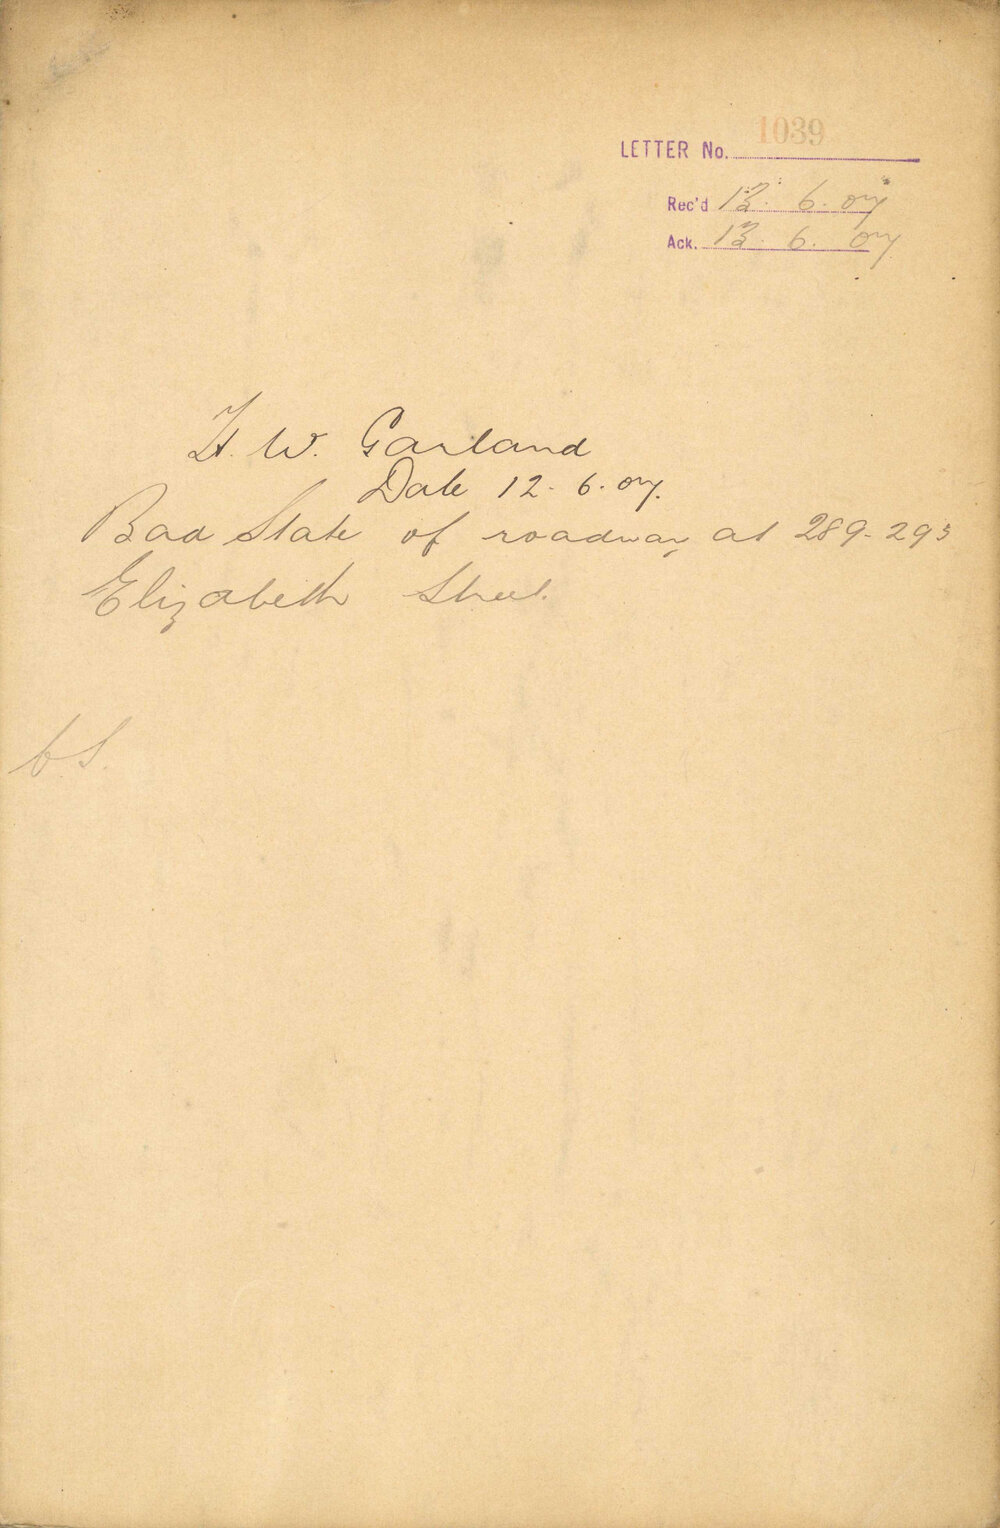 1039
LETTER No.
Rec'd 13. 6. 07
Ack. 13. 6. 07
H. W. Garland
Date 12. 6. 07.
Bad State of roadway at 289-293
Elizabeth Street.
C.S.